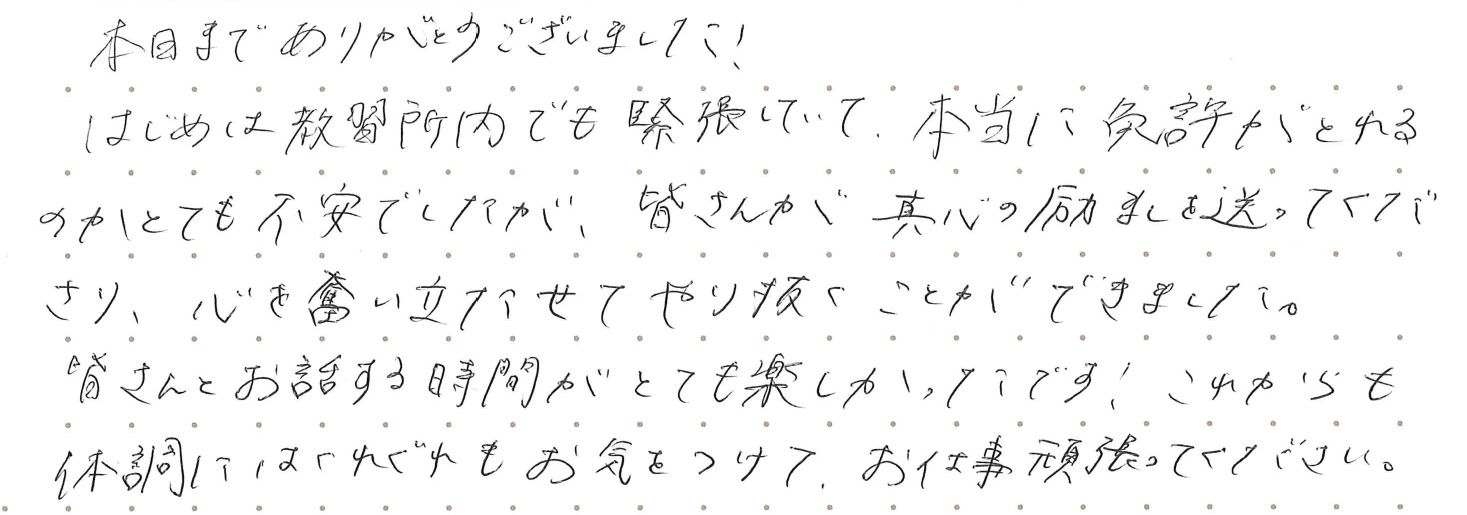 本日までありがとうございました!
はじめは教習所内でも緊張していて、本当に免許がとれる
のかとても不安でしたが、皆さんが真心の励ましを送ってくだ
さり、心を奮い立たせてやり抜くことができました。
皆さんとお話する時間がとても楽しかったです!これからも
体調にはくれぐれもお気をつけて、お仕事頑張ってください。